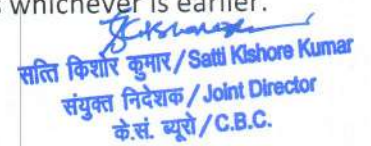 whichever is earlier.
सत्ति किशोर कुमार / Satti Kishore Kumar
संयुक्त निदेशक / Joint Director
के.सं. ब्यूरो / C.B.C.